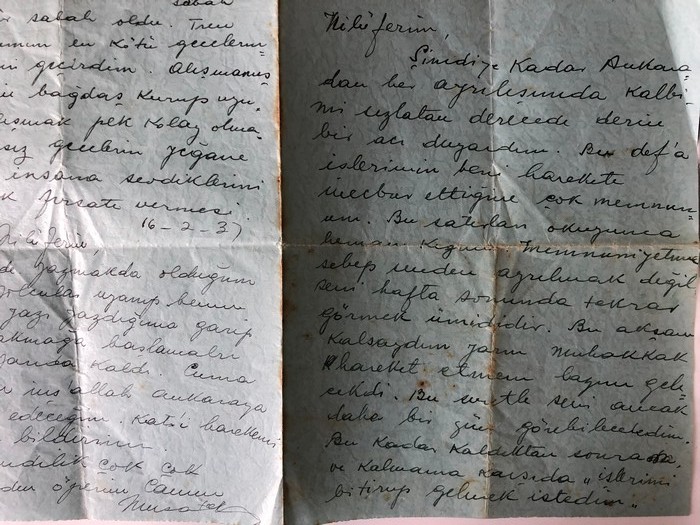 sabah
sabah oldu. Tren
en kötü gecelerin-
geçirdim. Alışmamış
bağdaş kurup uyu-
pek kolay olma-
gecelerin yegâne
insana sevdiklerini
fırsatı vermesi
16-2-37
Nilüferim,
yazmakda olduğum
uyanıp benim
yazı yazdığıma garip
başlamaları
kaldı. Cuma
inş'allah ankaraya
edeceğim. Kat'i hareketimi
bildiririm.
çok çok
öperim Canım
Nilüferim,
Şimdiye kadar Ankara
dan her ayrılışımda kalbi-
mi sızlatan derecede derin
bir acı duyardım. Bu def'a
işlerimin beni harekete
mecbur ettiğine çok memnun-
um. Bu satırları okuyunca
hemen kızma. Memnuniyetime
sebep senden ayrılmak değil
seni hafta sonunda tekrar
görmek ümididir. Bu akşam
kalsaydım yarın muhakkak
hareket etmem lazım gele-
cekdi. Bu suretle seni ancak
daha bir gün görebilecekdim.
Bu kadar kaldıktan sonra
ve kalmama karşıda „işlerimi
bitirip gelmek istedim"